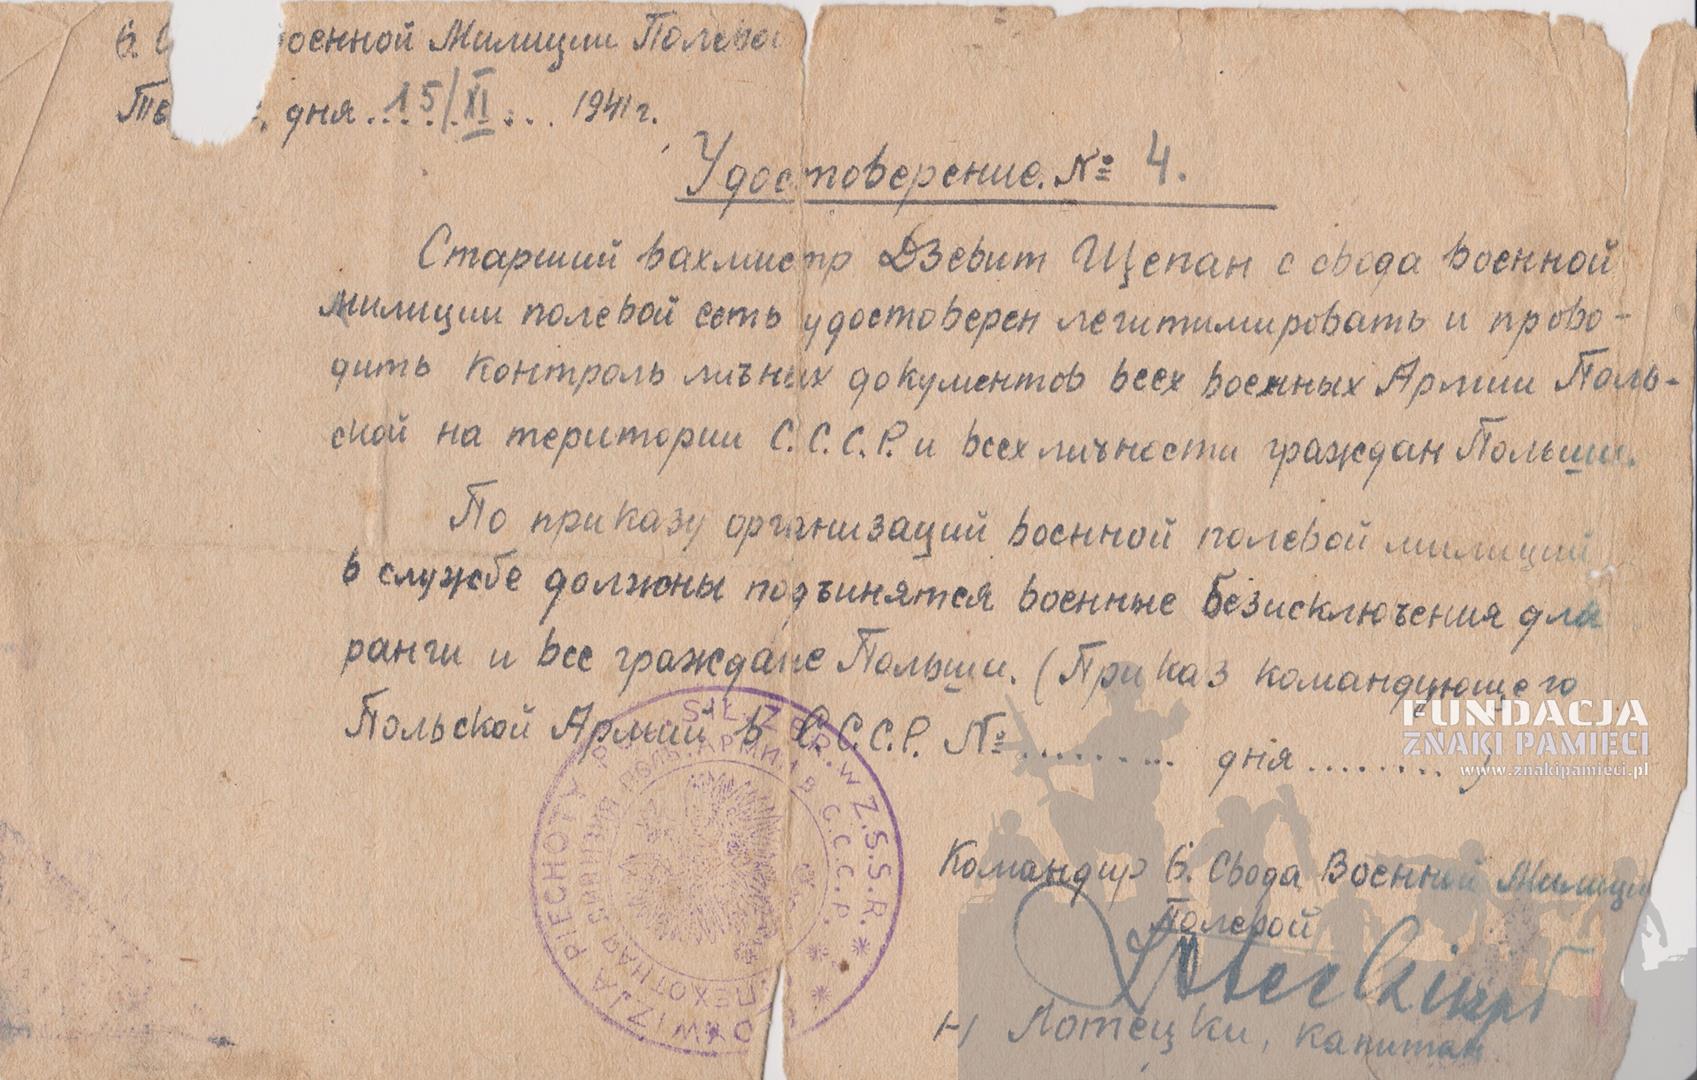 6. оенной Милиции Полево
дня .... 15/XI ... 1941 г.
Удостоверение. № 4.
Старший вахмистр Дзевит Щепан с свода военной
милиции полевой есть удостоверен легитимировать и прово-
дить контроль личных документов всех военных Армии Поль-
ской на територии С.С.С.Р. и всех личности граждан Польши.
По приказу организаций военной полевой милиций
в службе должны подчинятся военные безисключения для
ранги и все граждане Польши. (Приказ командующего
Польской Армий в С.С.С.Р. № ......... дня ........ )
Командир 6. Свода Военной Милиции
Полевой
-/ Лотецки, капитан
DYWIZJA PIECHOTY P. SIŁ. ZBR. W Z.S.S.R.
ПЕХОТНАЯ ДИВИЗИЯ ПОЛЬ. АРМИИ В С.С.С.Р.
FUNDACJA
ZNAKI PAMIĘCI
www.znakipamieci.pl